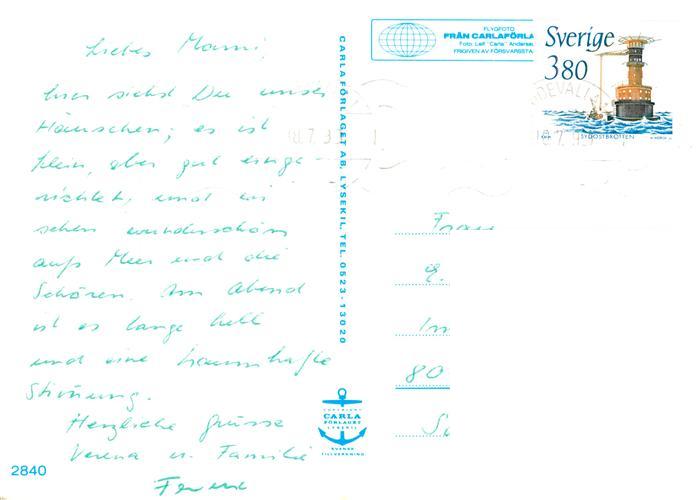 Liebes Mammi,
hier siehst Du unser
Häuschen; es ist
klein, aber gut einge-
richtet, und wir
sehen wunderschön
aufs Meer und die
Schären. Am Abend
ist es lange hell
und eine traumhafte
Stimmung.
Herzliche Grüsse
Verena u. Familie
2840
CARLAFÖRLAGET AB, LYSEKIL, TEL. 0523-13020
COPYRIGHT
CARLA
FÖRLAGET
LYSEKIL
SVENSK
TILLVERKNING
FLYGFOTO
FRÅN CARLAFÖRLA
Foto: Leif "Carla" Anderss
FRIGIVEN AV FÖRSVARSSTA
Sverige
380
SYDOSTBROTTEN
DDEVALLA
18.7.9
Frau
80